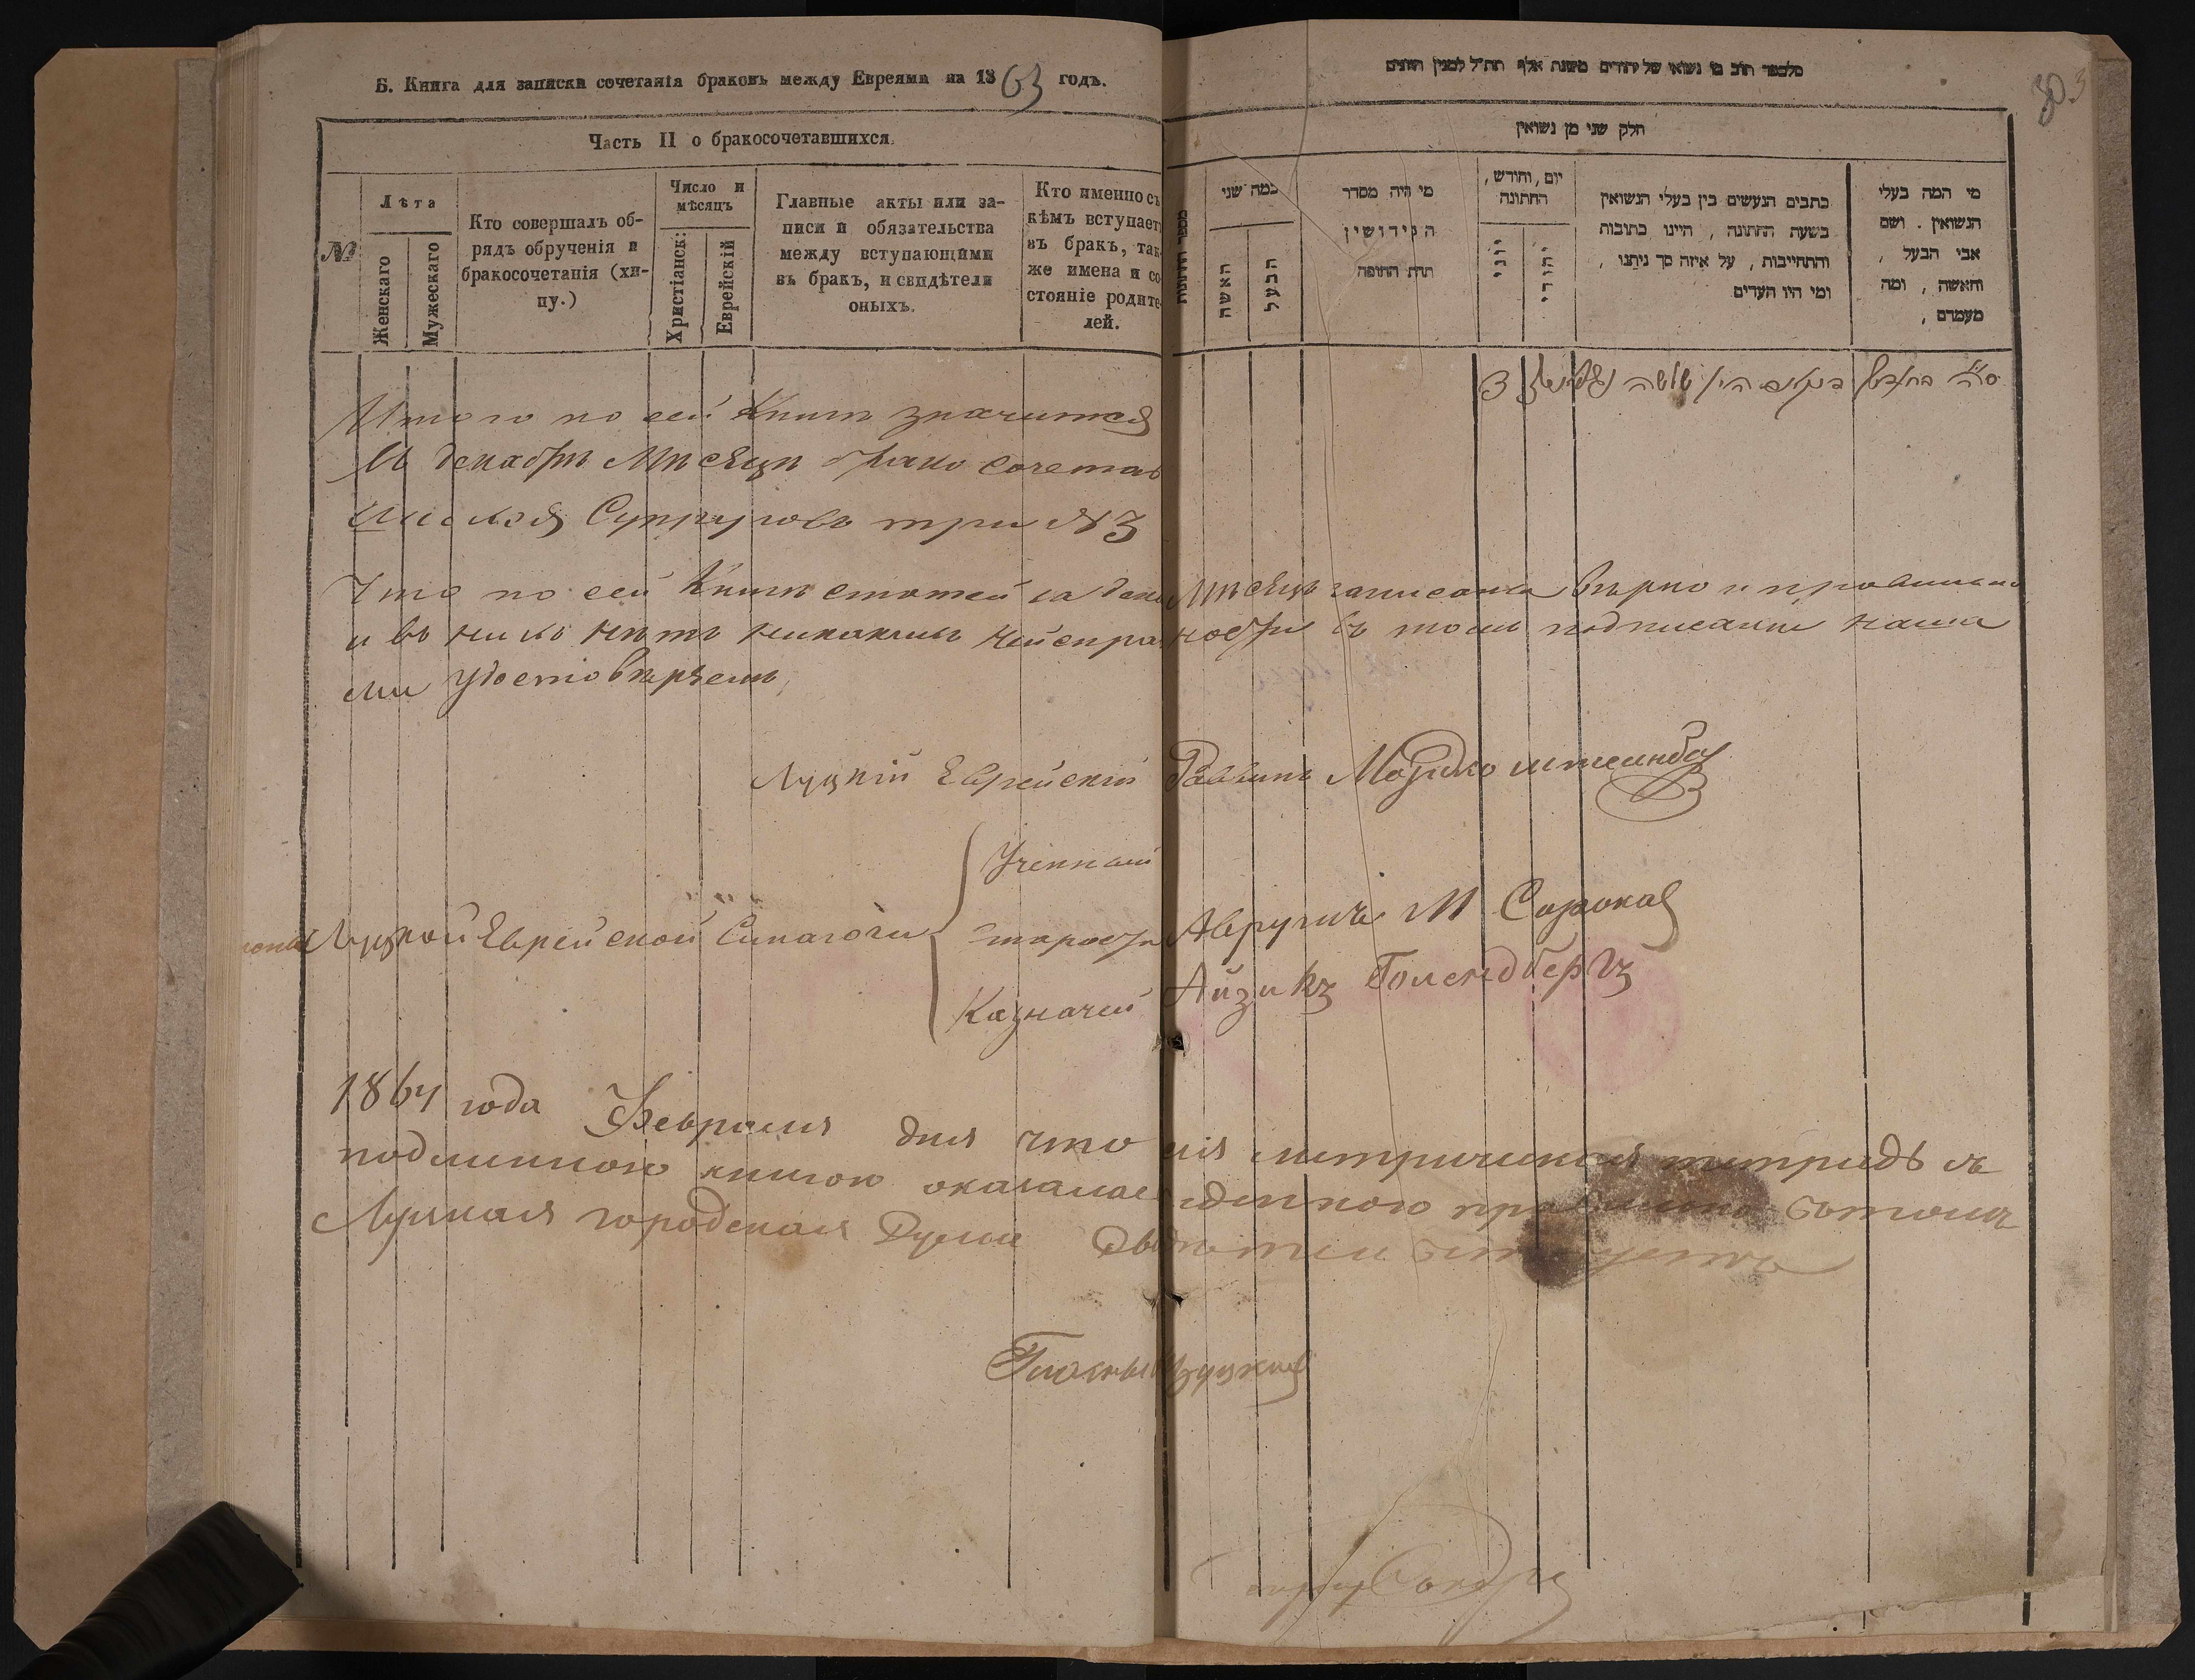 Б. Книга для записки сочетанія браковъ между Евреями на 1863 годъ.
Часть II о бракосочетавшихся.
№
Лѣта
Женскаго
Мужескаго
Кто совершалъ об-
рядъ обрученія и
бракосочетанія (хи-
пу.)
Число и
мѣсяцъ
Христіанск:
Еврейскій
Главные акты или за-
писи и обязательства
между вступающими
въ бракъ, и свидѣтели
оныхъ.
Кто именно съ
кѣмъ вступает
въ бракъ, так-
же имена и со-
стояніе родите-
лей.
303
חלק שני מן נשואין
כמה שני
האשה
הבעל
מי היה מסדר
הקידושין
תחת החופה
יום, וחודש,
החתונה
יוני
יהודי
כתבים הנעשים בין בעלי הנשואין
בשעת החתונה, היינו כתובות
והתחייבות, על איזה סך ניתנו,
ומי היו העדים
מי המה בעלי
הנשואין. ושם
אבי הבעל,
והאשה, ומה
מעמדם,
Итого по сей Книгѣ значится
въ декабрѣ Мѣсяцѣ бракосочетав
шихся Супруговъ три № 3
Что по сей Книгѣ статей за дека Мѣсяцъ записаны вѣрно и правильно
и въ нихъ нѣтъ никакихъ неисправностей въ томъ подписаніи наши
ми удостовѣряемъ
Луцкій Еврейскій Раввинъ Мордко
Ученный
Луцкой Еврейской Синагоги Староста М Сорока
Казначей Айзикъ Голендберъ
1864 года Февраля дня что сія метрическая тетрадь съ
подлинною книгою оказалась правильно въ томъ
Луцкая городская Дума
Гласный